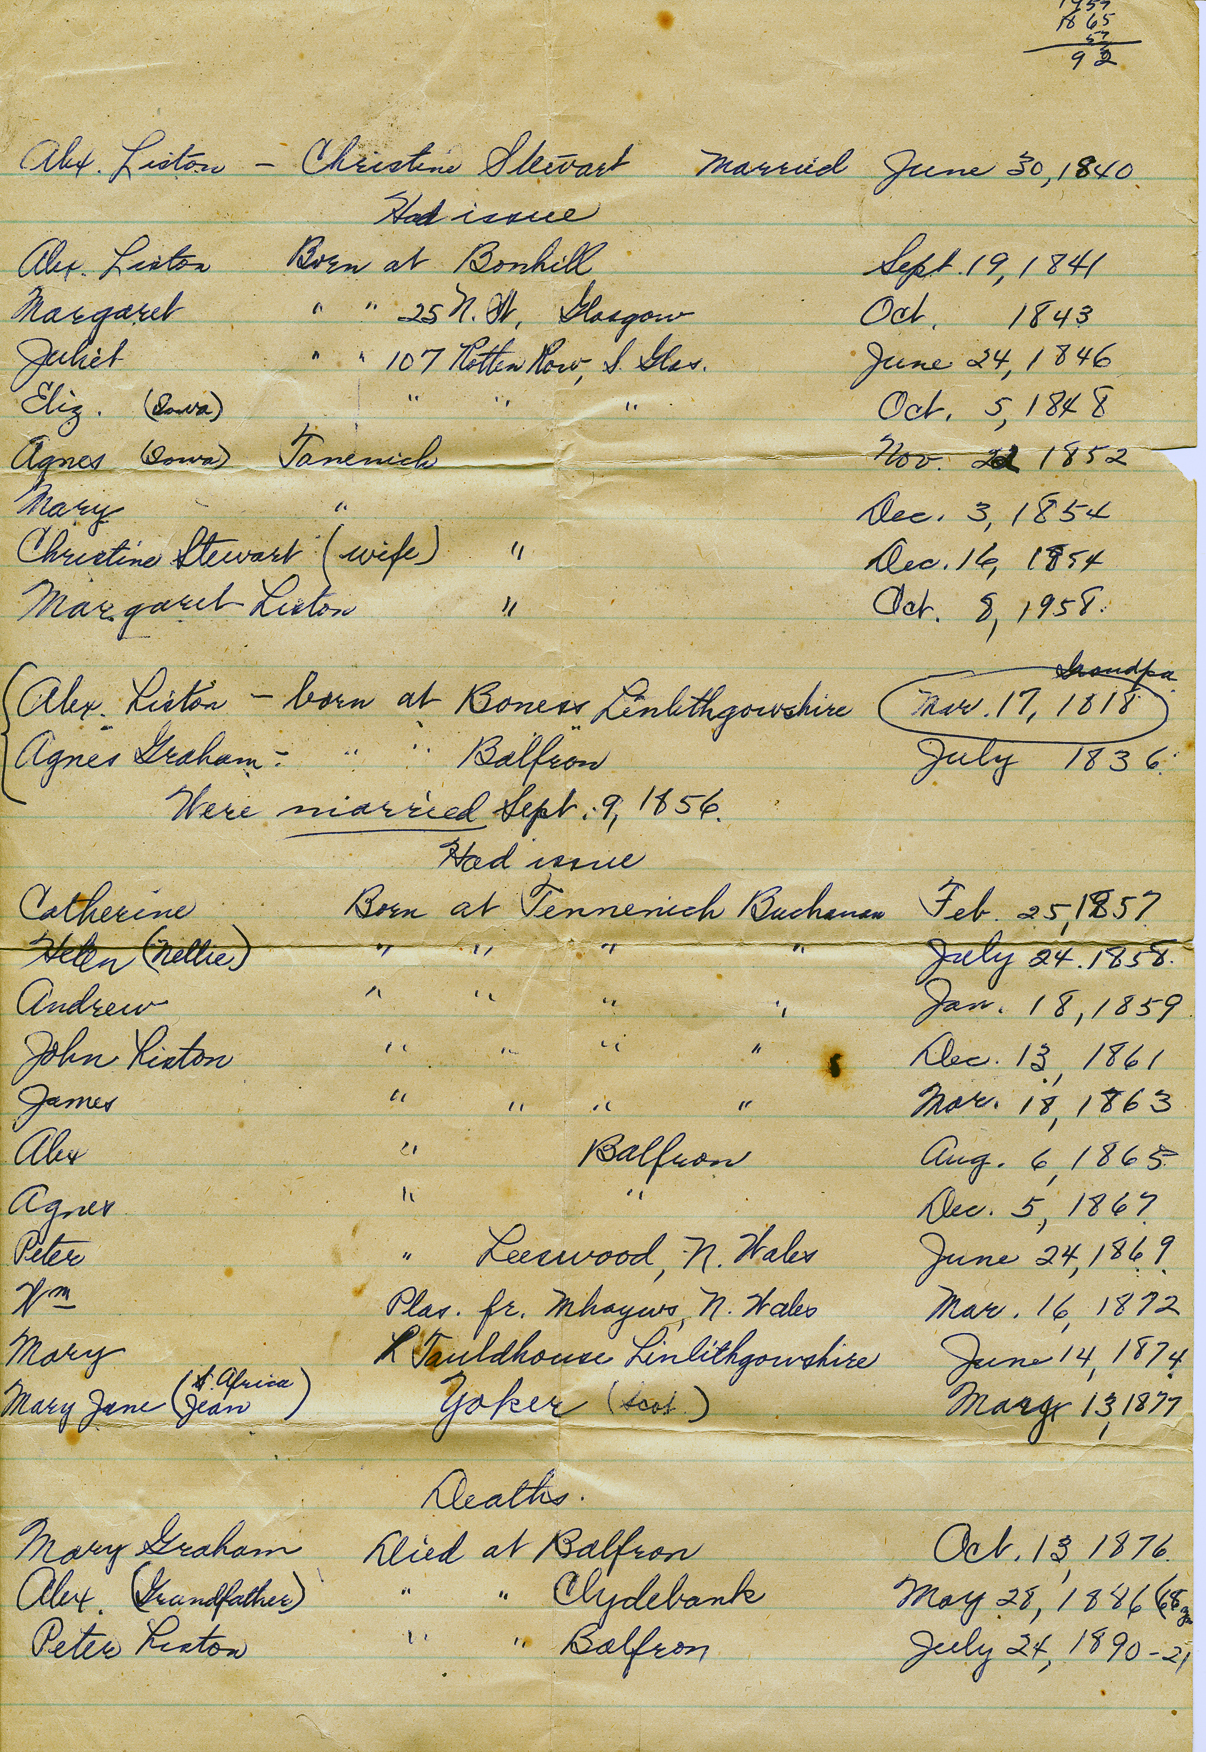 1957
1865
57
92
Alex. Liston - Christine Stewart Married June 30, 1840
Had issue
Alex. Liston Born at Bonhill Sept. 19, 1841
Margaret " " 25 N. St. Glasgow Oct. 1843
Juliet " " 107 Rotten Row, S. Glas. June 24, 1846
Eliz. (Iowa) " " " Oct. 5, 1848
Agnes (Iowa) Tanenich Nov. 22 1852
Mary " Dec. 3, 1854
Christine Stewart (wife) " Dec. 16, 1854
Margaret Liston " Oct. 8, 1958.
Grandpa
Alex. Liston - born at Boness Linlithgowshire Mar. 17, 1818
Agnes Graham - " " Balfron July 1836.
Were married Sept. 9, 1856.
Had issue
Catherine Born at Tennenich Buchanan Feb. 25, 1857
Helen (Nellie) " " " " July 24. 1858.
Andrew " " " " Jan. 18, 1859
John Liston " " " " Dec. 13, 1861
James " " " " Mar. 18, 1863
Alex " Balfron Aug. 6, 1865
Agnes " " Dec. 5, 1867
Peter " Leeswood, N. Wales June 24, 1869
Wm Plas. fr. Mhayws, N. Wales Mar. 16, 1872
Mary Fauldhouse Linlithgowshire June 14, 1874
(S. Africa
Mary Jane (Jean) Yoker (Scot.) 13, 1877
Deaths.
Mary Graham Died at Balfron Oct. 13, 1876
Alex. (Grandfather) " " Clydebank May 28, 1886 (68
Peter Liston " " Balfron July 24, 1890 - 21